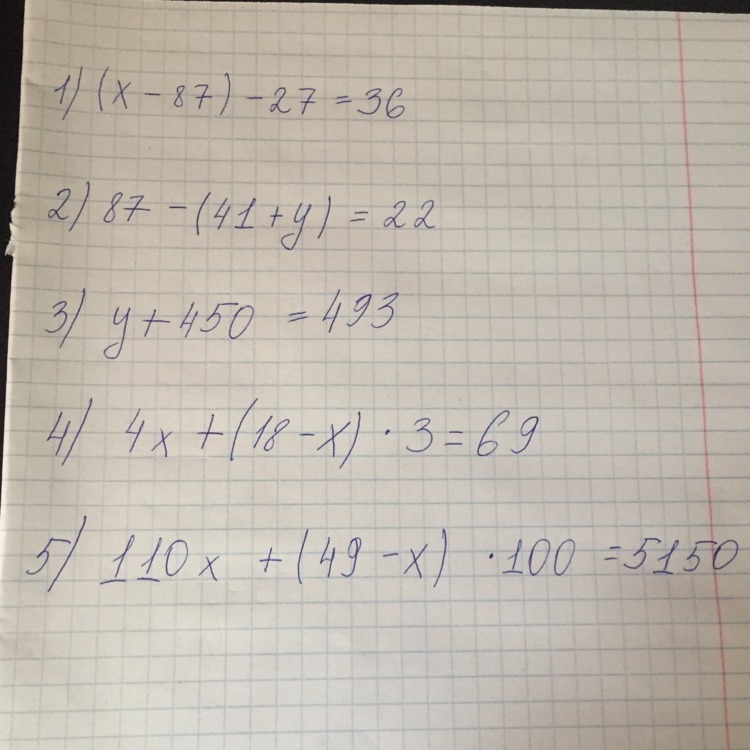 1) (x - 87) - 27 = 36
2) 87 - (41 + y) = 22
3) y + 450 = 493
4) 4x + (18 - x) · 3 = 69
5) 110x + (49 - x) · 100 = 5150